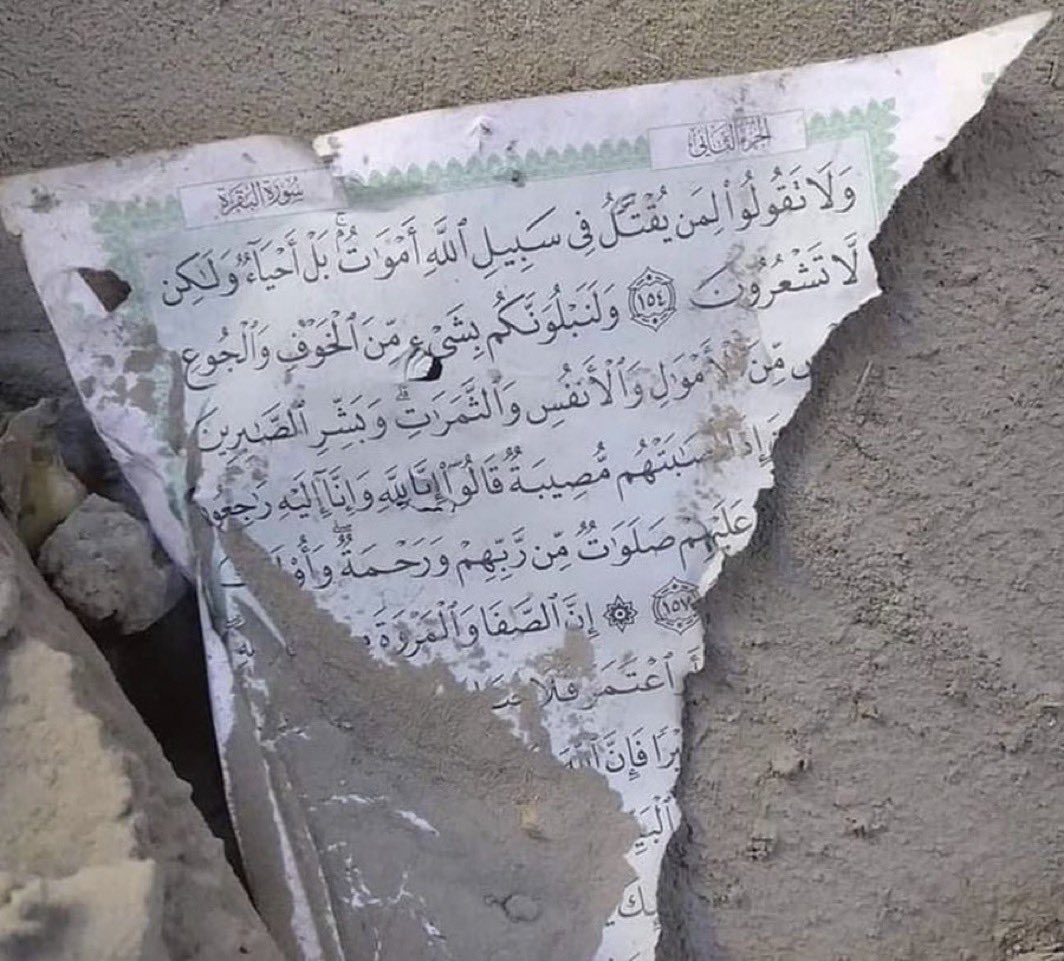 الجزء الثاني
سورة البقرة
وَلَا تَقُولُوا۟ لِمَن يُقْتَلُ فِى سَبِيلِ ٱللَّهِ أَمْوَٰتٌۢ ۚ بَلْ أَحْيَآءٌ وَلَٰكِن
لَّا تَشْعُرُونَ ١٥٤ وَلَنَبْلُوَنَّكُم بِشَىْءٍ مِّنَ ٱلْخَوْفِ وَٱلْجُوعِ
مِّنَ ٱلْأَمْوَٰلِ وَٱلْأَنفُسِ وَٱلثَّمَرَٰتِ ۗ وَبَشِّرِ ٱلصَّٰبِرِينَ
إِذَا مُّصِيبَةٌ قَالُوٓا۟ إِنَّا لِلَّهِ وَإِنَّآ إِلَيْهِ
عَلَيْهِمْ صَلَوَٰتٌ مِّن رَّبِّهِمْ وَرَحْمَةٌ ۖ
١٥٧ ۞ إِنَّ ٱلصَّفَا وَٱلْمَرْوَةَ
ٱعْتَمَرَ فَلَا
فَإِنَّ ٱللَّهَ